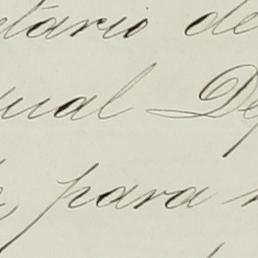 etario de
ual De
para